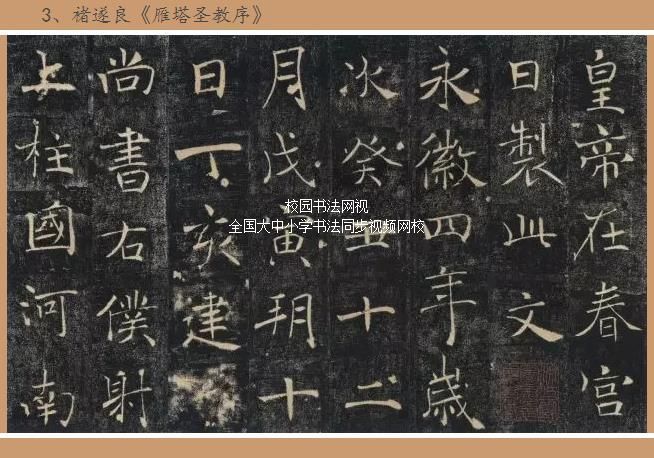 3、褚遂良《雁塔圣教序》
皇帝在春宮
日製此文
永徽四年歲
次癸丑十二
月戊寅朔十
日丁亥建
尚書右僕射
上柱國河南
校园书法网视
全国大中小学书法同步视频网校